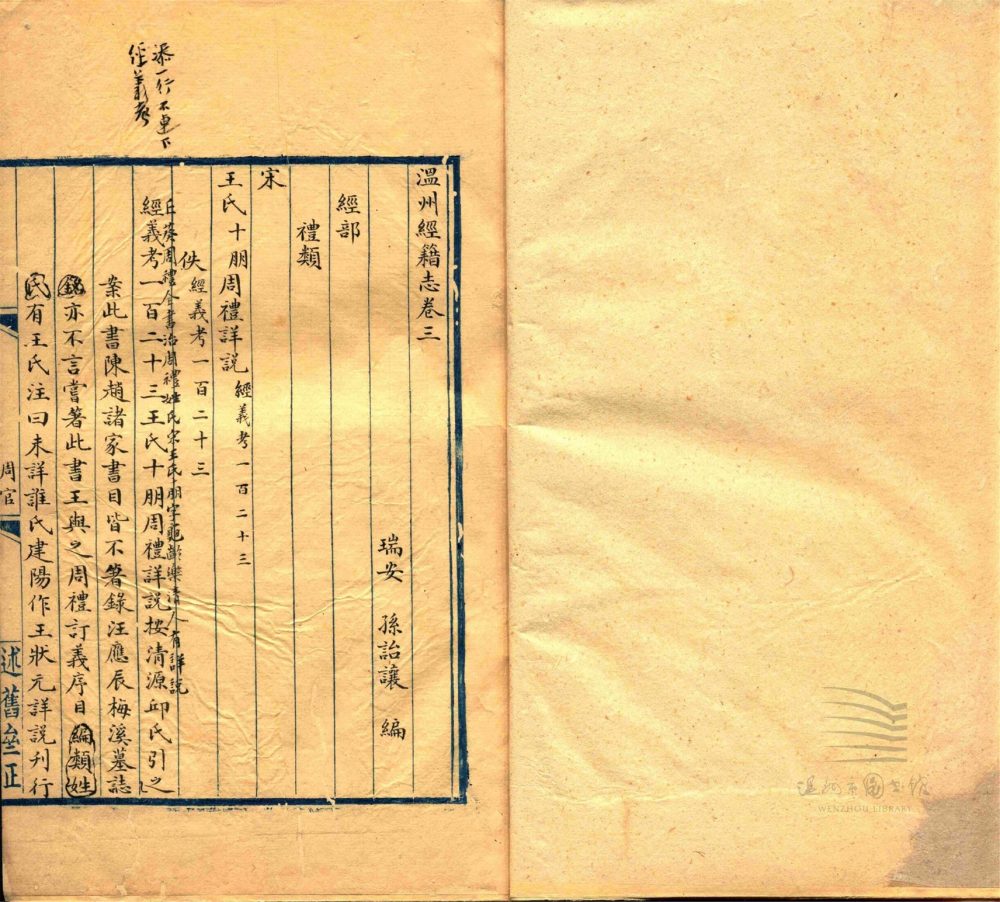 添一行不連下
經義考
溫州經籍志卷三
瑞安 孫詒讓 編
經部
禮類
宋
王氏十朋周禮詳說 經義考一百二十三
佚 經義考一百二十三
丘葵周禮全書治周禮姓氏宋王氏十朋字龜齡樂清人有詳說
經義考一百二十三王氏十朋周禮詳說按清源邱氏引之
案此書陳趙諸家書目皆不箸錄汪應辰梅溪墓誌
銘亦不言嘗著此書王與之周禮訂義序目編類姓
氏有王氏注曰未詳誰氏建陽作王狀元詳說刊行
周官
述舊
正
溫州市圖書館
WENZHOU LIBRARY